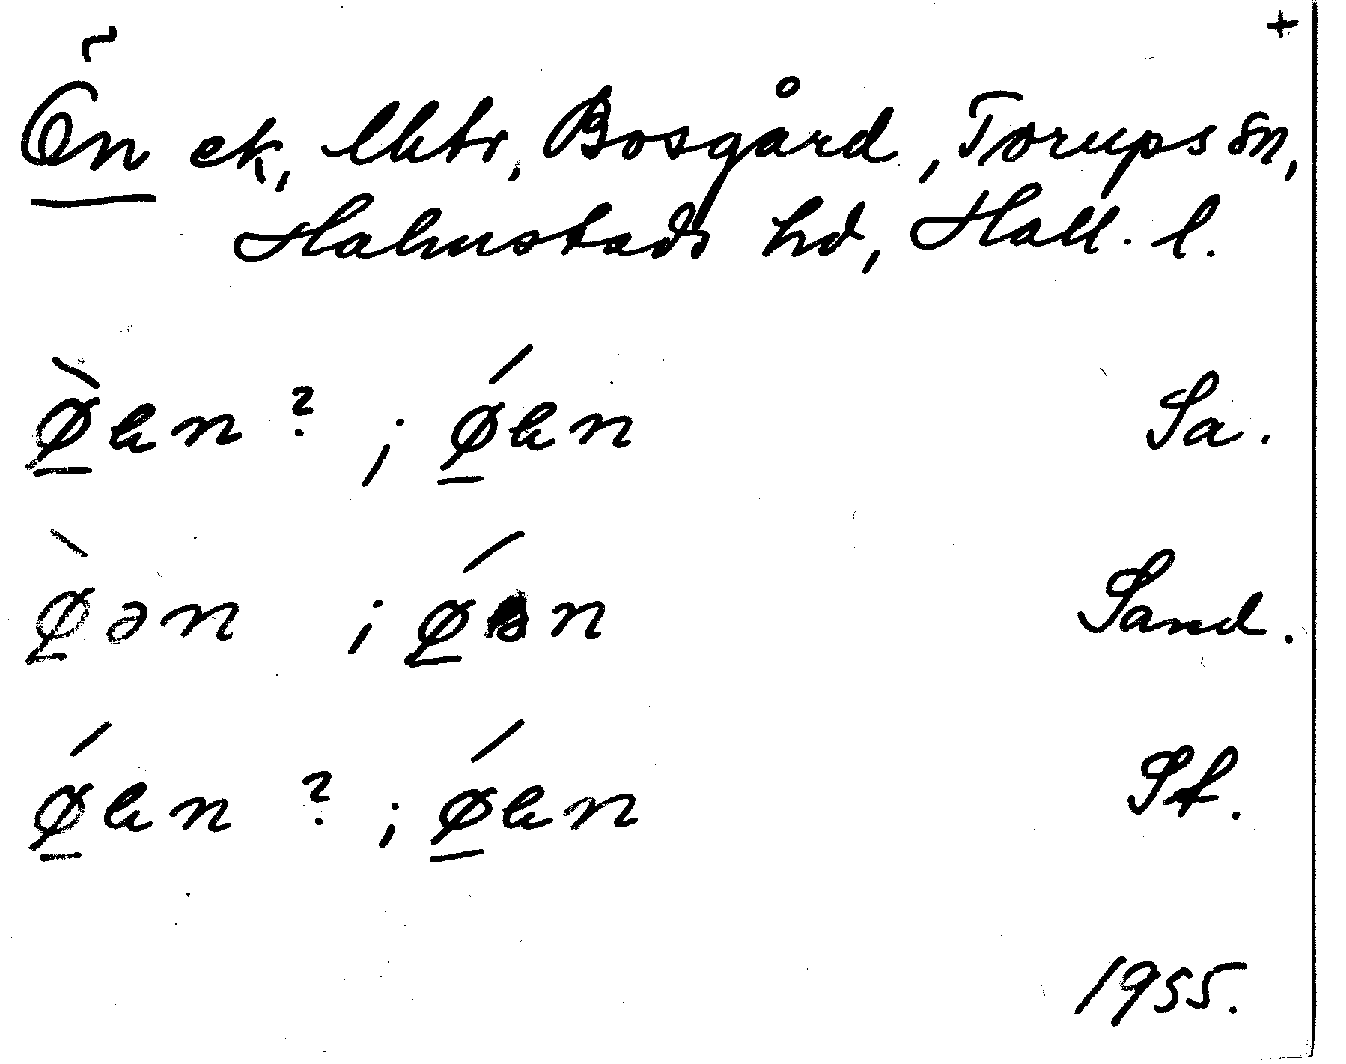 +
Ön ek, lktr, Bosgård, Torups sn,
Halmstads hd, Hall. l.
ø̀en ? ; ǿen Sa.
ø̀ən ; ǿən Sand.
ǿen ? ; ǿen St.
1955.